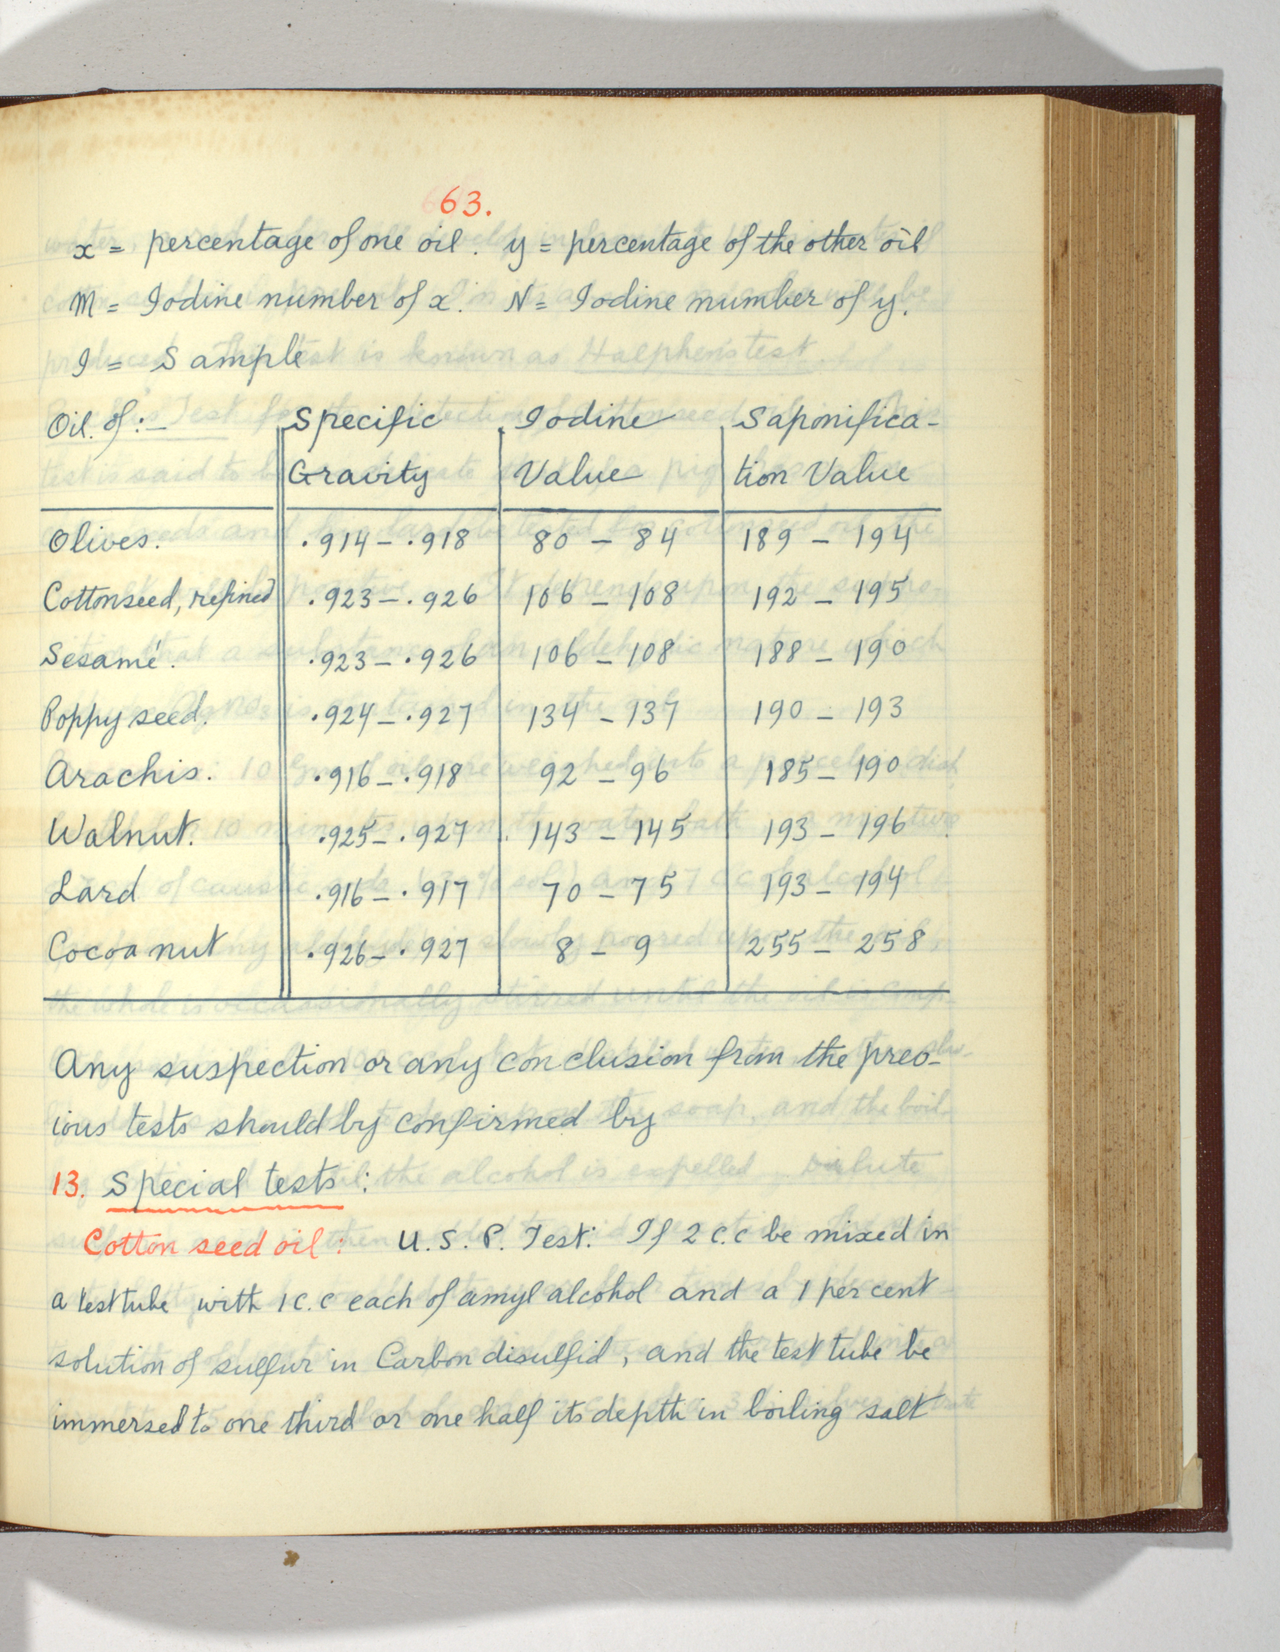 663.
x = percentage of one oil. y = percentage of the other oil
M = Iodine number of x. N = Iodine number of y.
I = Sample
Oil of:- Specific Iodine Saponifica-
Gravity Value tion Value
Olives. .914 - .918 80 - 84 189 - 194
Cottonseed, refined .923 - .926 106 - 108 192 - 195
Sesamé. .923 - .926 106 - 108 188 - 190
Poppy seed. .924 - .927 134 - 137 190 - 193
Arachis. .916 - .918 92 - 96 185 - 190
Walnut. .925 - .927 143 - 145 193 - 196
Lard .916 - .917 70 - 75 193 - 194
Cocoa nut .926 - .927 8 - 9 255 - 258
Any suspection or any conclusion from the prev-
ious tests should by confirmed by
13. Special tests:
Cotton seed oil: U.S.P. Test: If 2 c.c be mixed in
a test tube with 1 c.c each of amyl alcohol and a 1 per cent
solution of sulfur in Carbon disulfid, and the test tube be
immersed to one third or one half its depth in boiling salt